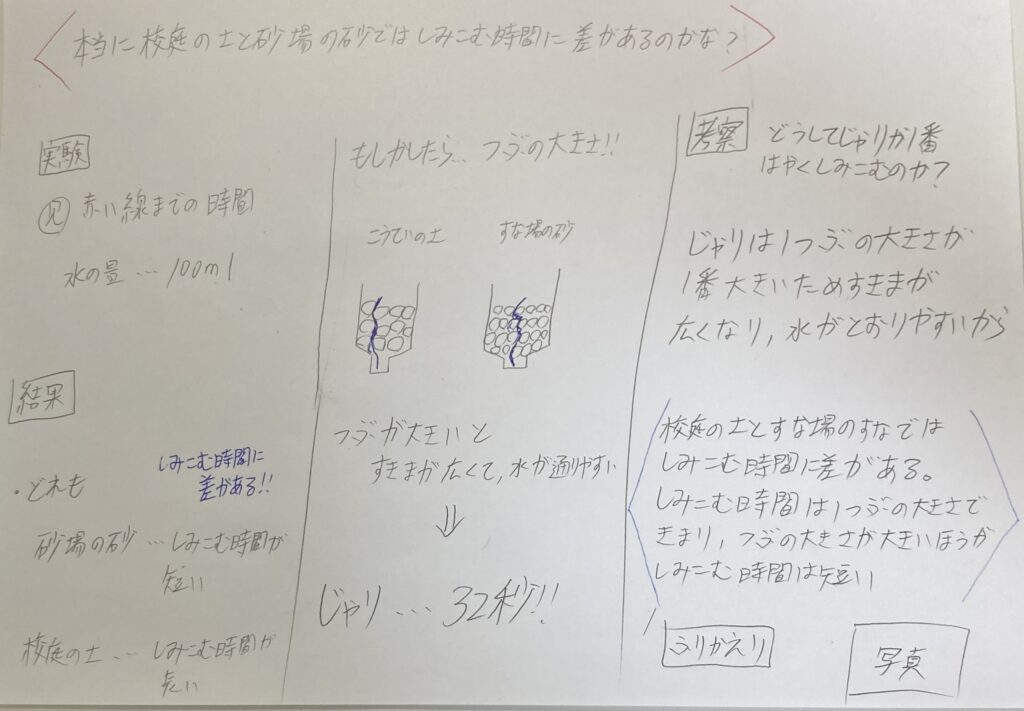 本当に校庭の土と砂場の砂ではしみこむ時間に差があるのかな?
実験
見 赤い線までの時間
水の量…100ml
結果
しみこむ時間に
差がある!!
・どれも
砂場の砂…しみこむ時間が
短い
校庭の土…しみこむ時間が
長い
もしかしたら…つぶの大きさ!!
こうていの土
すな場の砂
つぶが大きいと
すきまが広くて,水が通りやすい
⇓
じゃり…32秒!!
考察
どうしてじゃりが1番
はやくしみこむのか?
じゃりは1つぶの大きさが
1番大きいためすきまが
広くなり,水がとおりやすいから
校庭の土とすな場のすなでは
しみこむ時間に差がある。
しみこむ時間は1つぶの大きさで
きまり,つぶの大きさが大きいほうが
しみこむ時間は短い
ふりかえり
写真